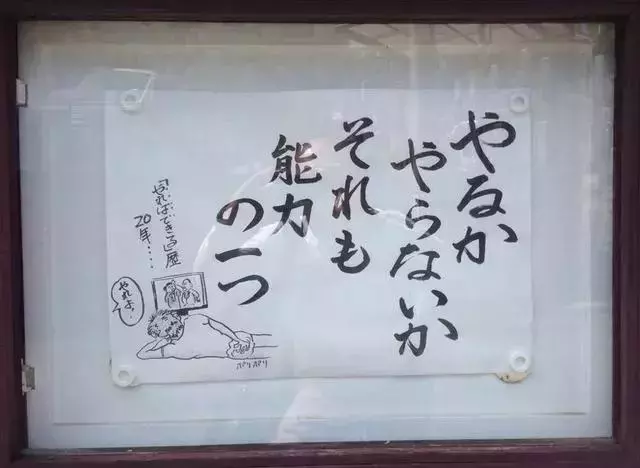 やるか
やらないか
それも
能力
の一つ
「やればできる」歴
20年‥‥
やれよ！
バリバリ